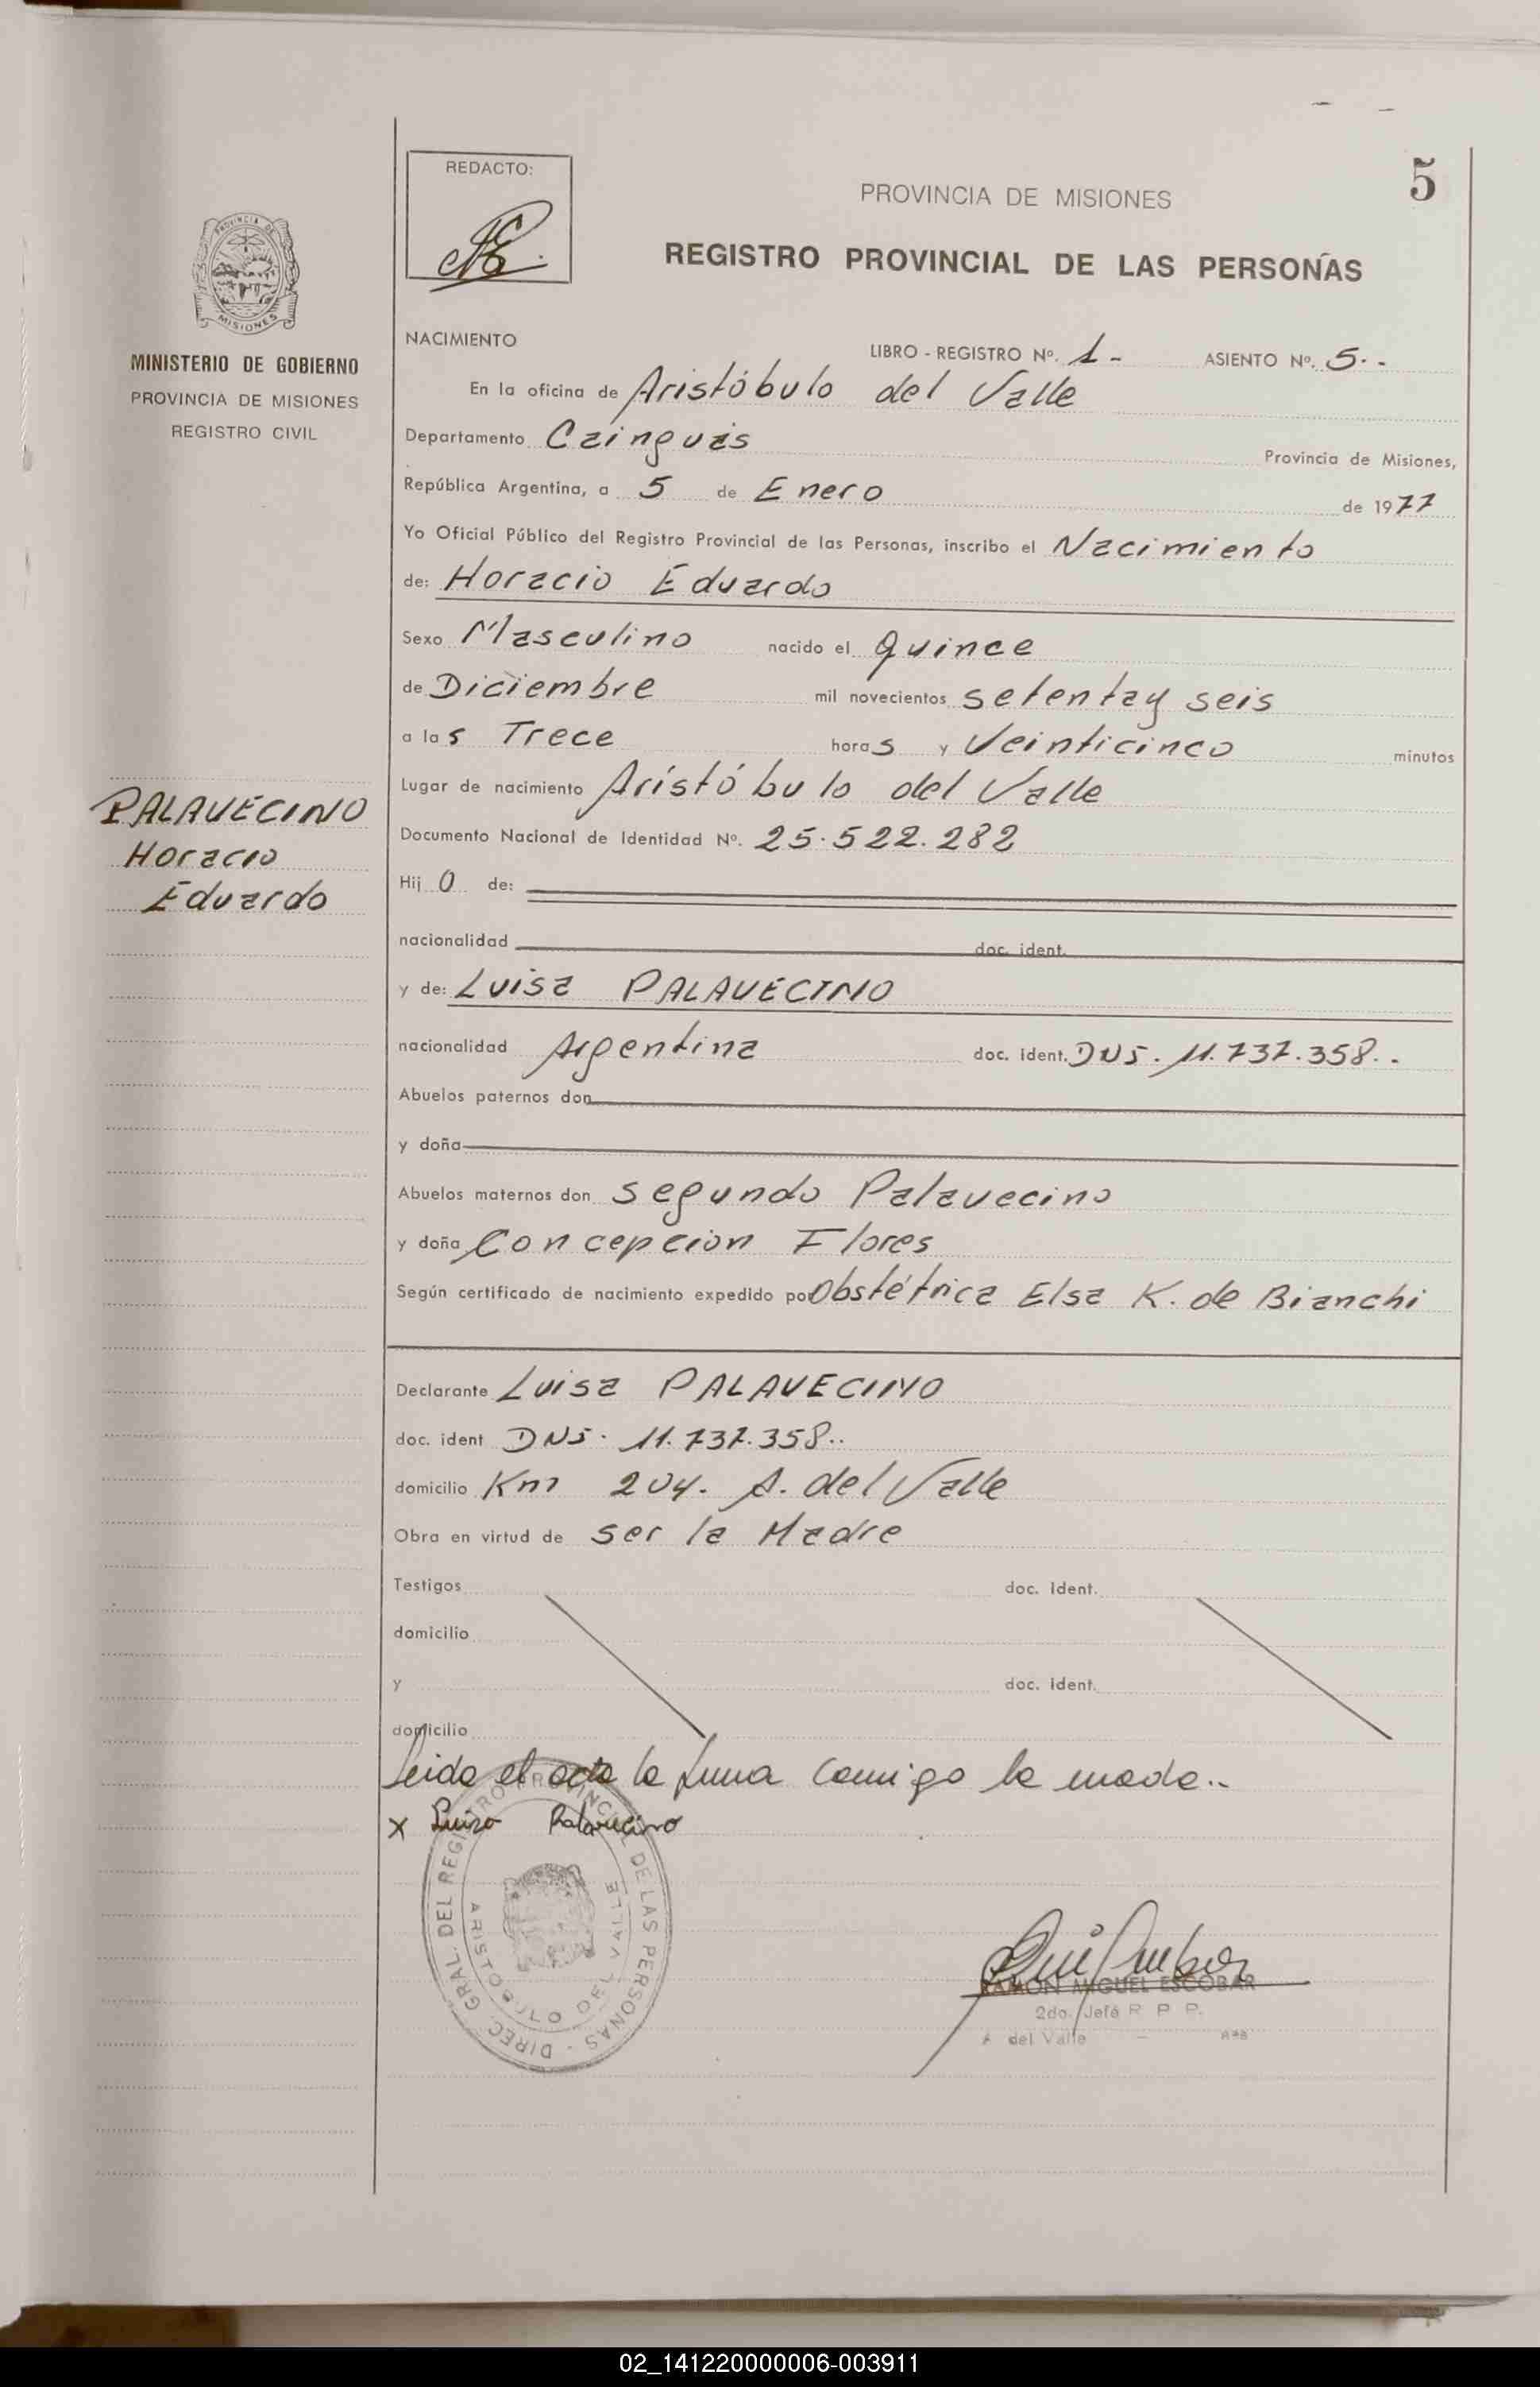 REDACTO:
5
PROVINCIA DE MISIONES
REGISTRO PROVINCIAL DE LAS PERSONAS
PROVINCIA DE
MISIONES
MINISTERIO DE GOBIERNO
PROVINCIA DE MISIONES
REGISTRO CIVIL
PALAVECINO
Horacio
Eduardo
NACIMIENTO
LIBRO - REGISTRO Nº. 1 - ASIENTO Nº. 5. -
En la oficina de Aristóbulo del Valle
Departamento Cainguás Provincia de Misiones,
República Argentina, a 5 de Enero de 1977
Yo Oficial Público del Registro Provincial de las Personas, inscribo el Nacimiento
de: Horacio Eduardo
Sexo Masculino nacido el quince
de Diciembre mil novecientos setenta y seis
a las Trece horas y Veinticinco minutos
Lugar de nacimiento Aristóbulo del Valle
Documento Nacional de Identidad Nº. 25.522.282
Hij o de:
nacionalidad doc. ident.
y de: Luisa PALAVECINO
nacionalidad Argentina doc. ident. DNJ. 11.737.358..
Abuelos paternos don
y doña
Abuelos maternos don segundo Palavecino
y doña Concepcion Flores
Según certificado de nacimiento expedido por Obstétrica Elsa K. de Bianchi
Declarante Luisa PALAVECINO
doc. ident DNJ. 11.737.358..
domicilio Km 204. A. del Valle
Obra en virtud de ser la Madre
Testigos doc. ident.
domicilio
y doc. ident.
domicilio
Leida el acta la firma comigo la madre..
x Luisa Palavecino
DIREC. GRAL. DEL REGISTRO PROVINCIAL DE LAS PERSONAS -
ARISTOBULO DEL VALLE
RAMON MIGUEL ESCOBAR
2do. Jefe R P P.
A del Valle
02_141220000006-003911